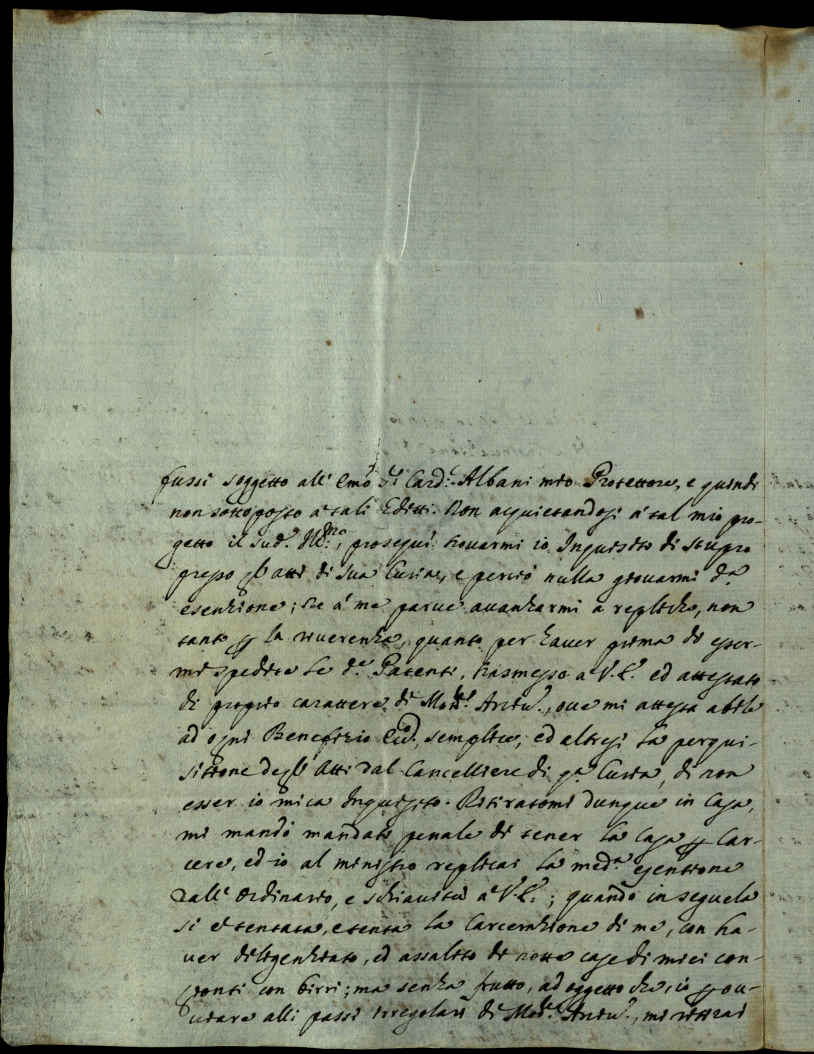 fussi soggetto all' Emo Sr Card. Albani mio Protettore, e quindi
non sottoposto a' tali Editti. Non acquietandosi a' tal mio pro-
getto il sud.º proseguì trovarmi io Inquisito di stupro
presso gl'atti di sua Curia, e perciò nulla giovarmi da
esenzione; Se a' me parve avanzarmi a repliche, non
tanto per la riverenza, quanto per haver prima di esser-
mi spedite le de Patenti, trasmesso a V.E. ed attestato
di proprio carattere di Mons.r Arciv.º, ove mi attesta abile
ad ogni Benefizio Eccl. semplice, ed altresì la perqui-
sitione degl'Atti dal Cancelliere di qa Curia, di non
esser io mica Inquisito. Ritiratomi dunque in Casa,
mi mandò mandato penale di tener la Casa per Car-
cere, ed io al ministro replicai la meda esentione
dall'ordinario, e schiavitù a V.E.; quando in seguela
si è tentata, e tenta la Carcerazione di me, con ha-
ver diligenziato, ed assalito di notte case di miei con-
gionti con birri; ma senza frutto, ad oggetto che, io per ov-
viare alli passi irregolari di Mons.r Arciv.º, mi ritirai